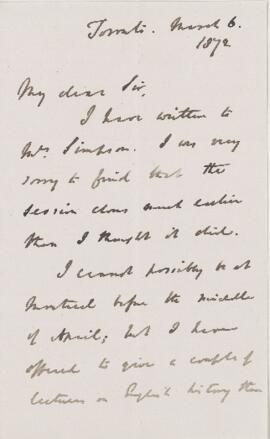 Toronto. March 6.
1872
My dear Sir,
I have written to
Mrs Simpson. I was very
sorry to find that the
session closes much earlier
than I thought it did.
I cannot possibly be at
Montreal before the middle
of April; but I have
offered to give a couple of
lectures on English history then